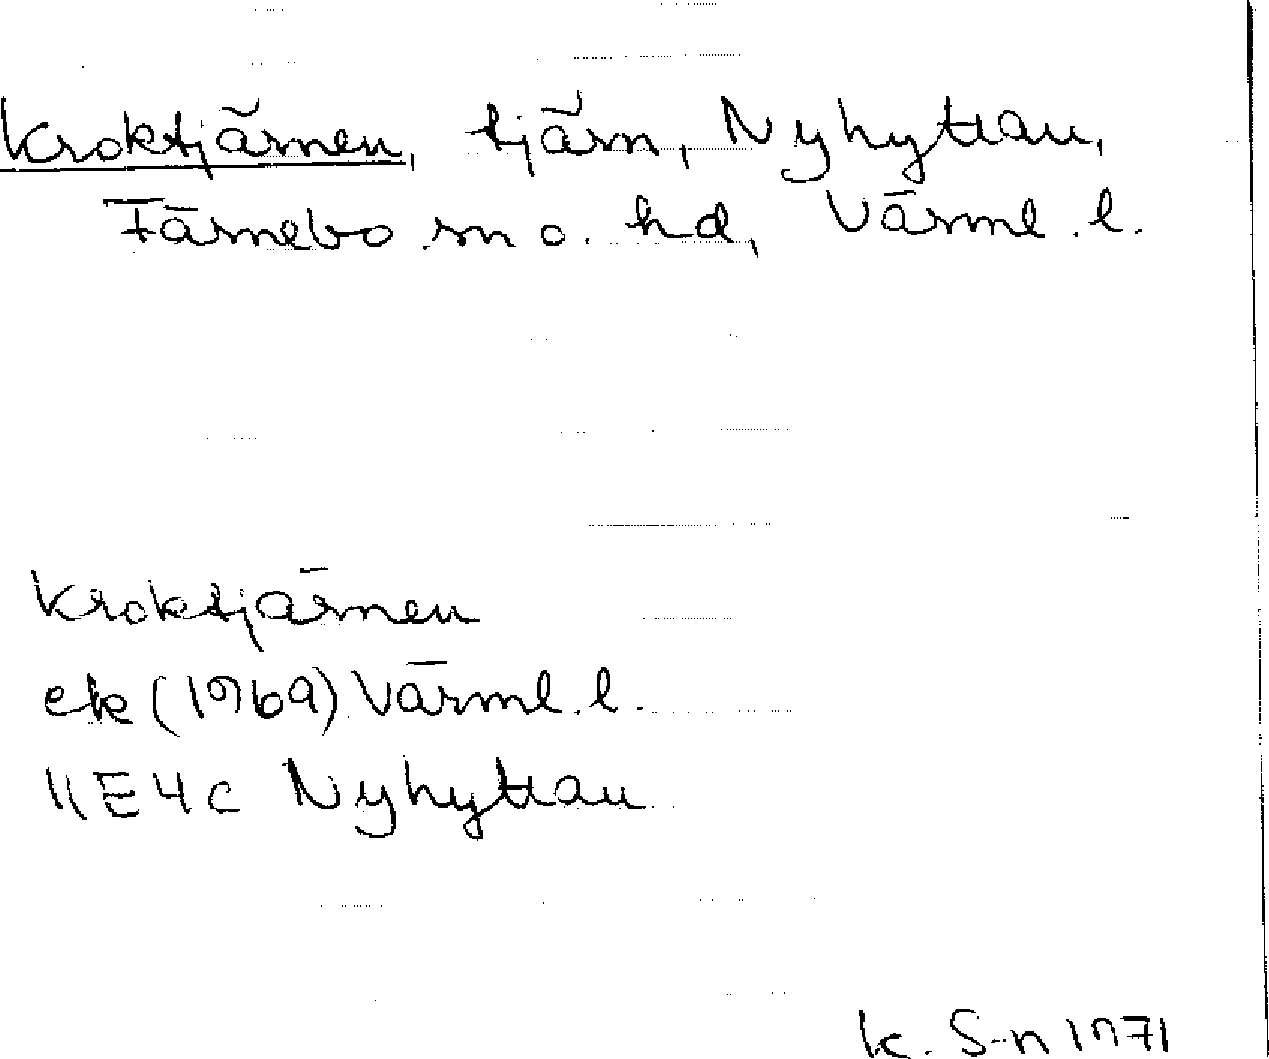 Kroktjärnen, tjärn, Nyhyttan,
Färnebo sn o. hd, Värml. l.
Kroktjärnen
ek (1969) Värml. l.
11E4c Nyhyttan
K. S-n 1971